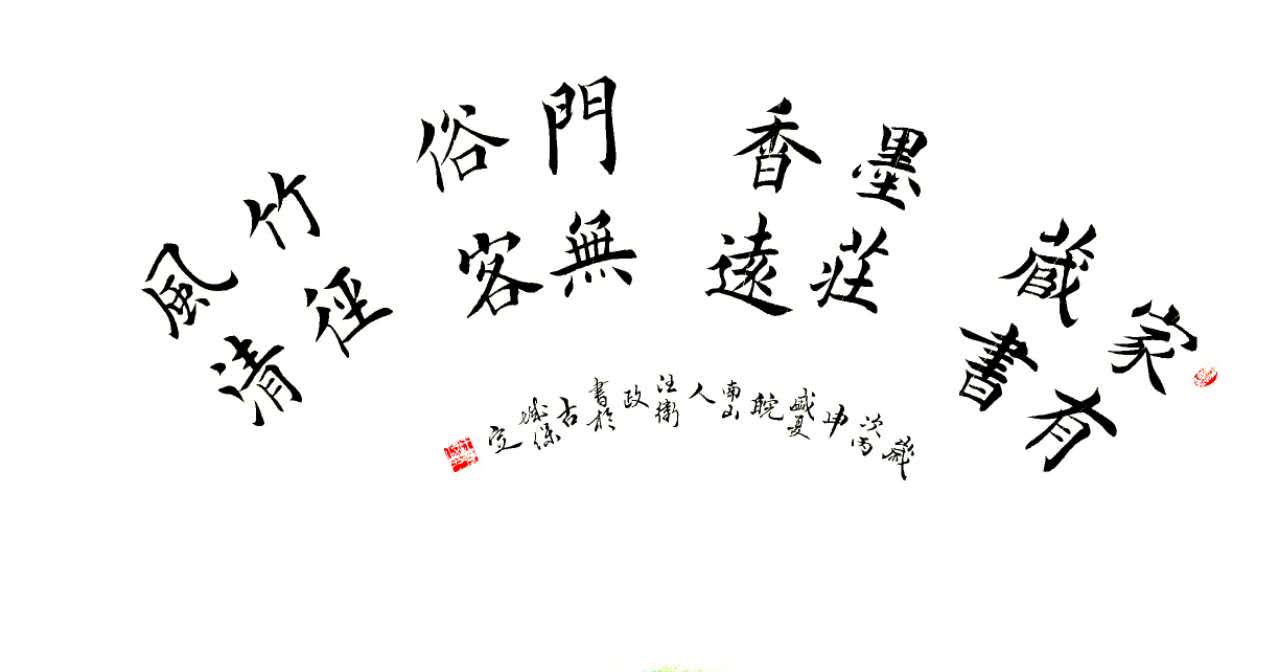 家有
藏書
墨莊
香遠
門無
俗客
竹徑
風清
歲
次丙
申
盛夏
皖
南山
人
汪衛
政
書於
古
城保
定